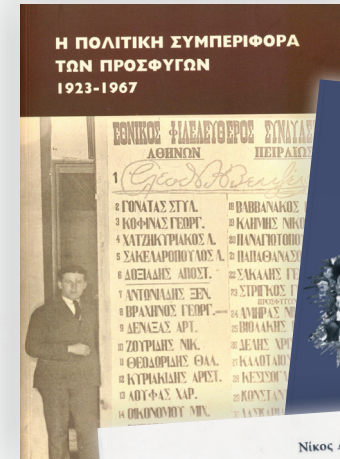 Η ΠΟΛΙΤΙΚΗ ΣΥΜΠΕΡΙΦΟΡΑ
ΤΩΝ ΠΡΟΣΦΥΓΩΝ
1923-1967
ΕΘΝΙΚΟΣ ΦΙΛΕΛΕΥΘΕΡΟΣ ΣΥΝΑΥΛΣ
ΑΘΗΝΩΝ ΠΕΙΡΑΙΩΣ
1
2 ΓΟΝΑΤΑΣ ΣΤΥΛ.
3 ΚΟΦΙΝΑΣ ΓΕΩΡΓ.
4 ΧΑΤΖΗΚΥΡΙΑΚΟΣ Α.
5 ΣΑΚΕΛΑΡΟΠΟΥΛΟΣ Λ.
6 ΔΟΞΙΑΔΗΣ ΑΠΟΣΤ.
7 ΑΝΤΩΝΙΑΔΗΣ ΞΕΝ.
8 ΒΡΑΧΙΝΟΣ ΓΕΩΡΓ.
9 ΔΕΝΔΖΑΣ ΑΡΤ.
10 ΖΟΥΡΙΔΗΣ ΝΙΚ.
11 ΘΕΟΔΩΡΙΔΗΣ ΘΑΛ.
12 ΚΥΡΙΑΚΙΔΗΣ ΑΡΙΣΤ.
13 ΛΟΥΦΑΣ ΧΑΡ.
14 ΟΙΚΟΝΟΜΟΥ ΜΙΧ.
ΒΑΒΒΑΝΑΚΟΣ
ΚΛΗΜΗΣ ΝΙΚΟ
ΠΑΝΑΓΙΩΤΟΠΟ
ΠΑΠΑΘΑΝΑΣ
ΣΑΚΑΛΗΣ ΓΕ
ΣΤΡΙΓΚΟΣ Γ
ΑΜΗΡΑΣ ΝΙ
ΒΙΟΛΑΚΗΣ
ΔΕΛΗΣ ΧΡΙ
ΚΑΛΟΤΑΙΟ
ΚΕΣΙΣΟΓ
ΚΩΝΣΤΑΝ
Νίκος